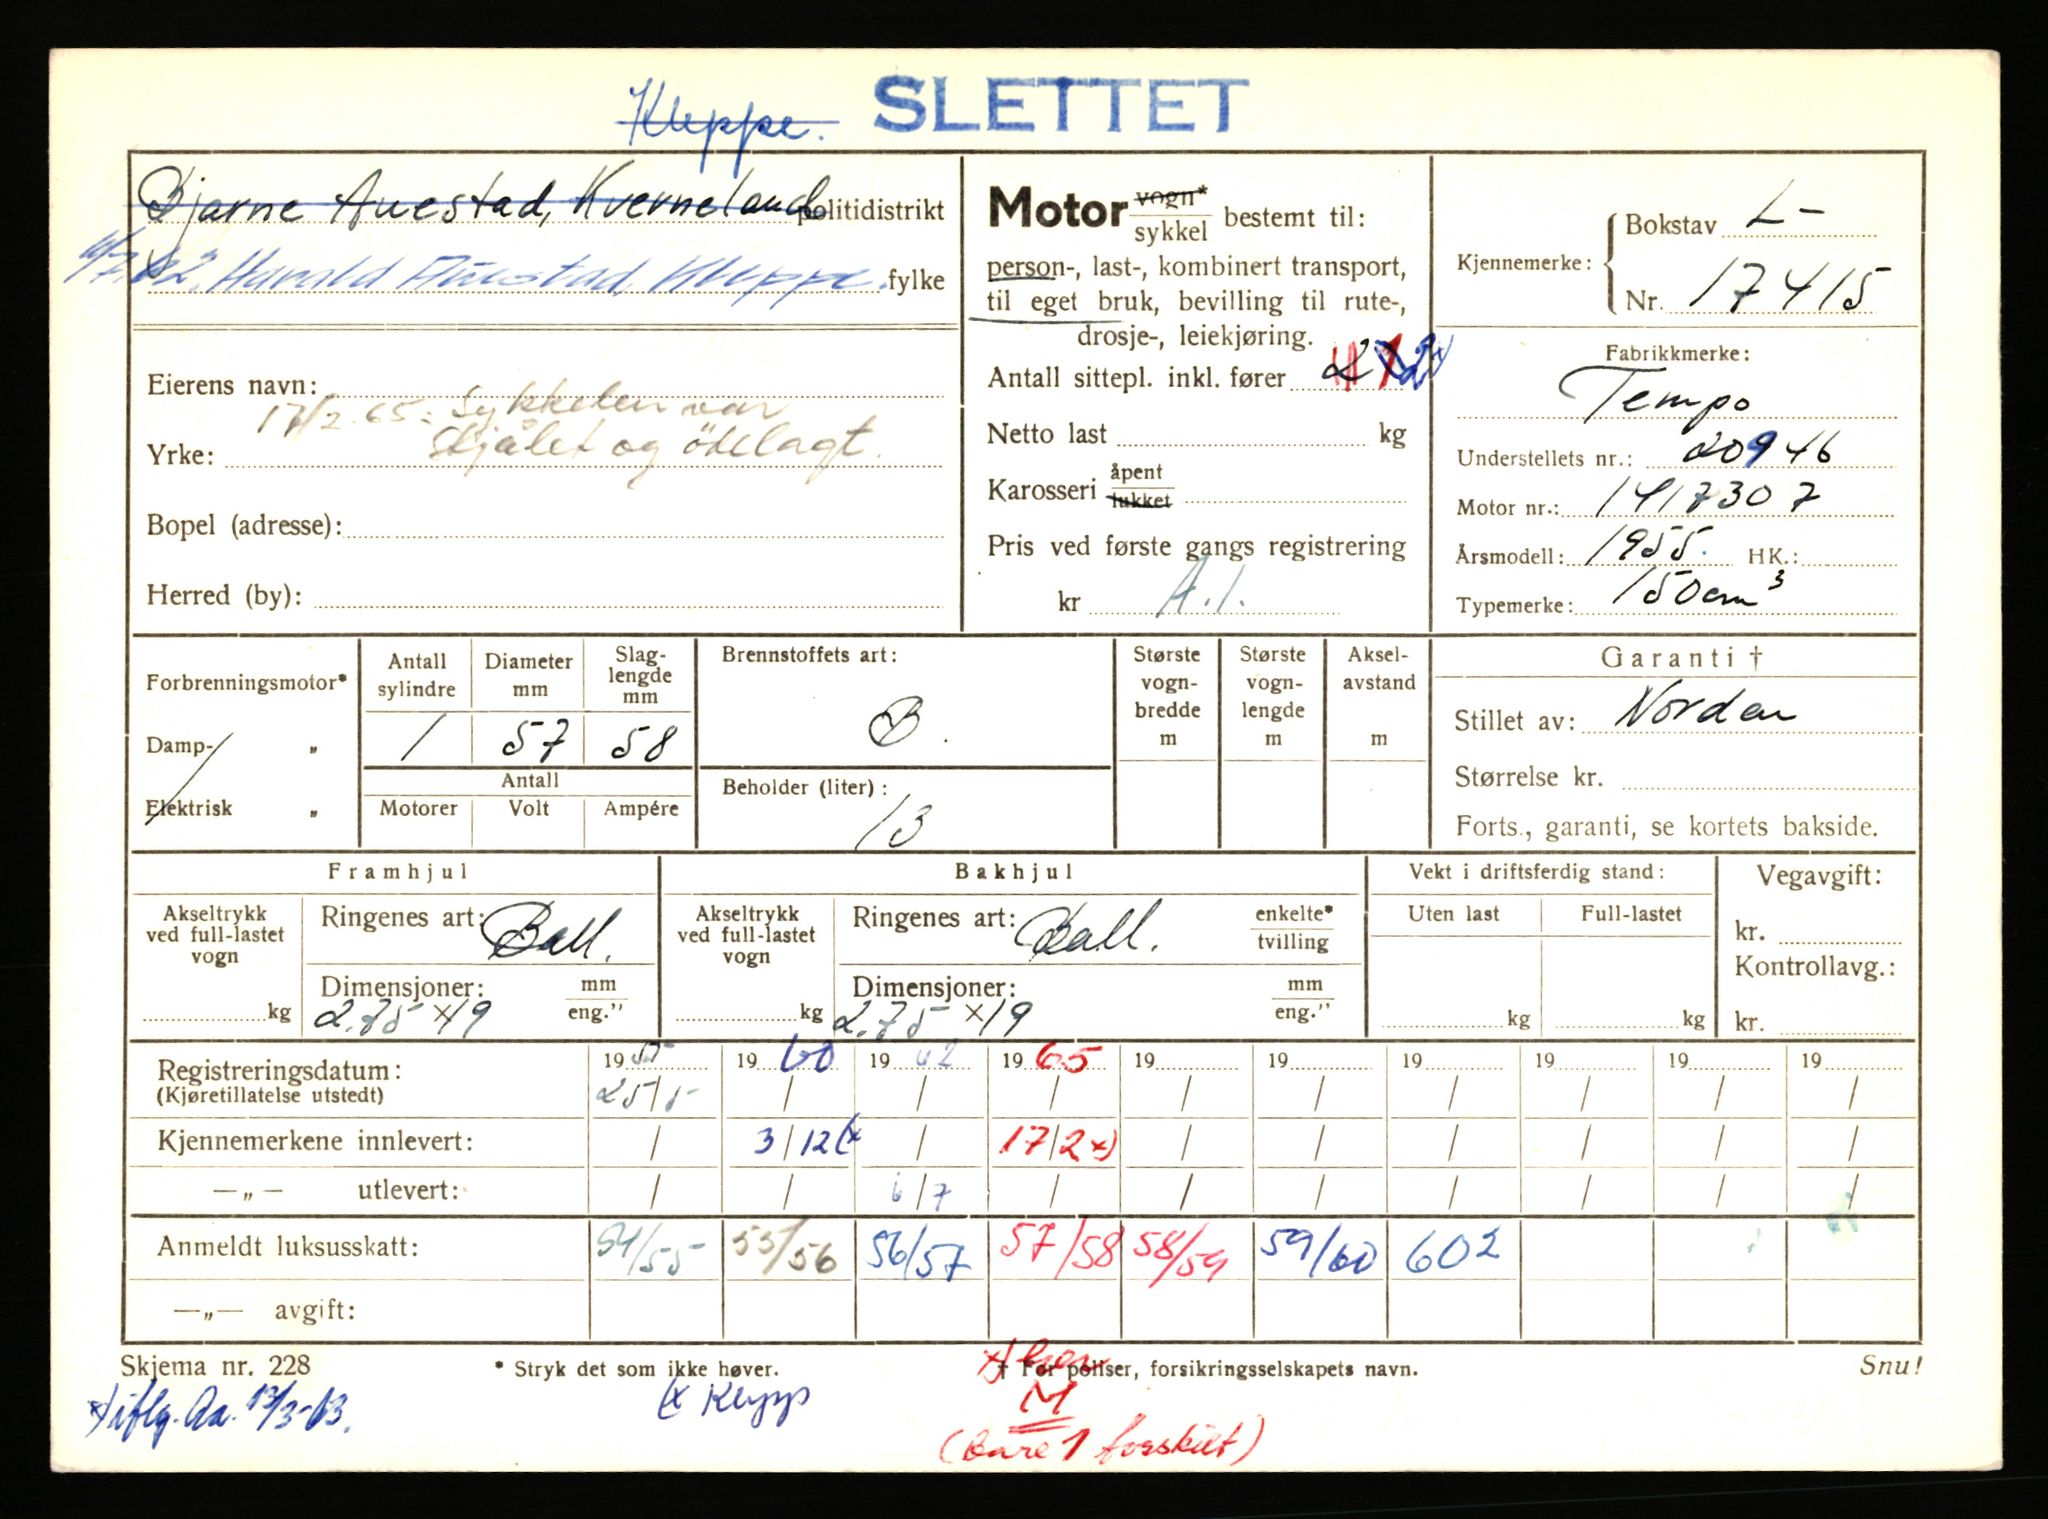 Kleppe. SLETTET
Bjarne Auestad, Kverneland politidistrikt
6/7.62. Harald Auestad, Kleppe. fylke
Eierens navn:
17/2.65: Sykkelen var
stjålet og ödelagt.
Yrke:
Bopel (adresse):
Herred (by):
Motor vogn* / sykkel bestemt til:
person-, last-, kombinert transport,
til eget bruk, bevilling til rute-,
drosje-, leiekjøring.
Antall sittepl. inkl. fører 2
Netto last kg
Karosseri åpent / lukket
Pris ved første gangs registrering
kr A.1.
Kjennemerke: Bokstav L-
Nr. 17415
Fabrikkmerke:
Tempo
Understellets nr.: 20946
Motor nr.: 1417307
Årsmodell: 1955. HK.:
Typemerke: 150cm³
Forbrenningsmotor*
Damp- „
Elektrisk „
Antall sylindre 1
Diameter mm 57
Slag-lengde mm 58
Antall
Motorer Volt Ampére
Brennstoffets art:
B.
Beholder (liter):
13
Største vogn-bredde m
Største vogn-lengde m
Aksel-avstand m
Garanti †
Stillet av: Norden
Størrelse kr.
Forts., garanti, se kortets bakside.
Framhjul
Akseltrykk ved full-lastet vogn
kg
Ringenes art: Ball.
Dimensjoner: mm / eng.”
2.75 x 19
Bakhjul
Akseltrykk ved full-lastet vogn
kg
Ringenes art: Ball. enkelte* / tvilling
Dimensjoner: mm / eng.”
2.75 x 19
Vekt i driftsferdig stand:
Uten last Full-lastet
kg kg
Vegavgift:
kr.
Kontrollavg.:
kr.
Registreringsdatum: 19 55 19 60 19 62 19 65 19 19 19 19 19 19
(Kjøretillatelse utstedt) 25/5 / / / / / / / / /
Kjennemerkene innlevert: / 3/12 (x / 17/2 x) / / / / / /
—„— utlevert: / / 6/7 / / / / / / /
Anmeldt luksusskatt: 54/55 55/56 56/57 57/58 58/59 59/60 602
—„— avgift:
Skjema nr. 228 * Stryk det som ikke høver. † Før poliser, forsikringsselskapets navn. Snu!
(x Klepp
M
(bare 1 forskilt)